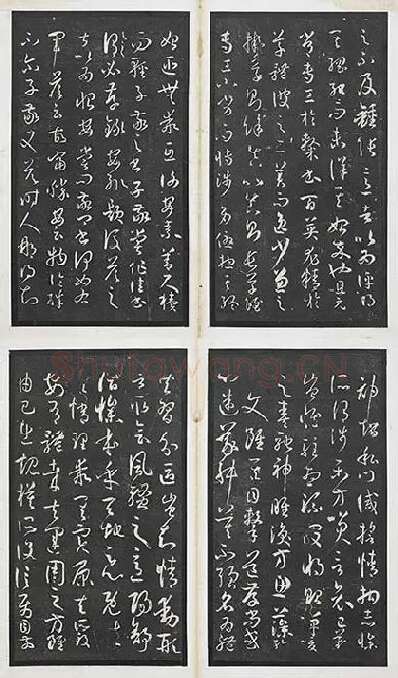 之不及鍾張意者以為評得
其綱紀而未詳其始卒也且元
常專工於隸書百英尤精於
草體彼之二美而逸少兼之
擬草則餘真比真則長草雖
專工小劣而博涉多優揔其終
始匪無乖互謝安素善尺牘
而輕子敬之書子敬嘗作佳書
與之謂必存錄安輒題後答之
甚以為恨安嘗問敬卿書何如右
軍答云故當勝安云物論殊
不尒子敬又答時人那得知
神超私門誡誓情拘志慘
所謂涉樂方笑言哀已歎
豈惟駐想流波將貽嘽噯
之奏馳神睢渙方思藻繪之
文雖其目擊道存尚或
心迷議舛莫不強名為體
共習分區豈知情動形
言取會風騷之意陽舒
陰慘本乎天地之心既失其
情理乖其實原夫所致
安有體哉夫運用之方雖
由己出規模所設信屬目前